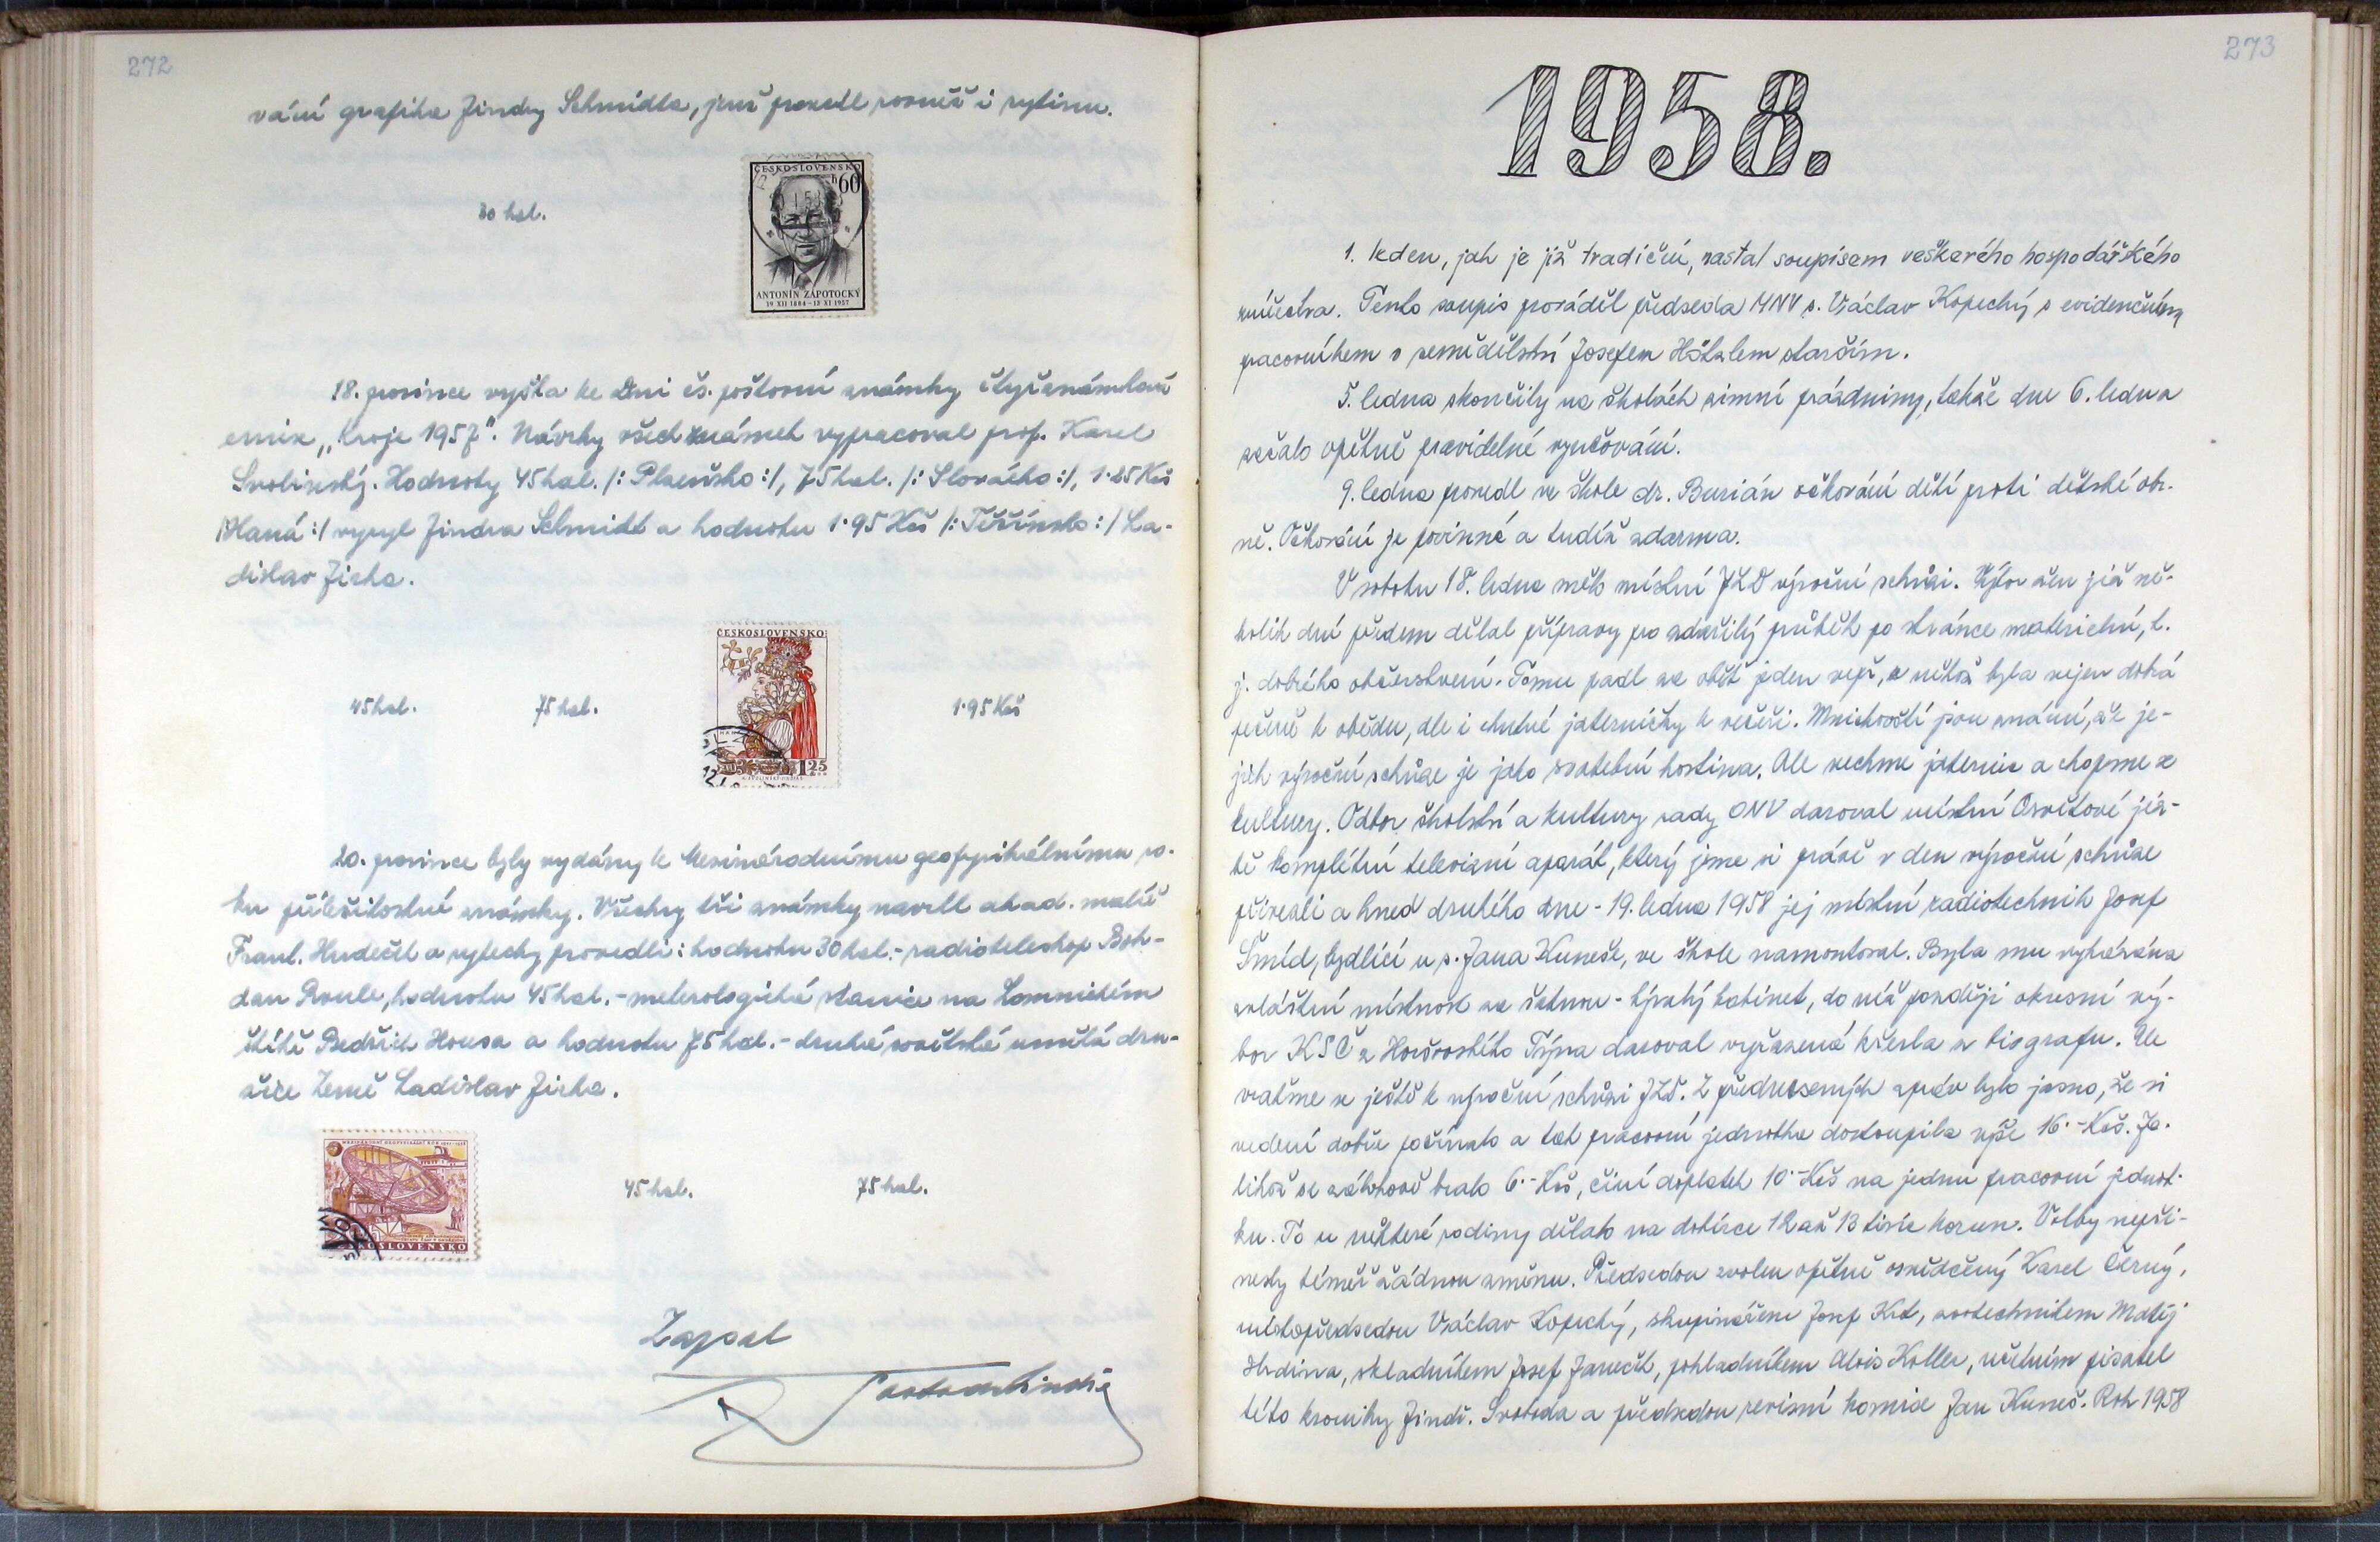 272
vání grafika Jindry Schmidta, jenž provedl rovněž i rytinu.
30 hal.
ČESKOSLOVENSKO
h 60
ANTONÍN ZÁPOTOCKÝ
19 XII 1884 - 13 XI 1957
18. prosince vyšla ke Dni čs. poštovní známky čtyřznámková
emise „Kroje 1957". Návrhy všech známek vypracoval prof. Karel
Svolinský. Hodnoty 45 hal. /: Plzeňsko :/, 75 hal. /: Slovácko :/, 1·25 Kčs
/: Haná :/ vyryl Jindra Schmidt a hodnotu 1·95 Kčs /: Těšínsko :/ La-
dislav Jirka.
ČESKOSLOVENSKO
45 hal. 75 hal. 1·95 Kčs
HANÁ
1 25
20. prosince byly vydány k Mezinárodnímu geofysikálnímu ro-
ku příležitostné známky. Všechny tři známky navrhl akad. malíř
Frant. Hudeček a rytecky provedli: hodnotu 30 hal.- radioteleskop Boh-
dan Roule, hodnotu 45 hal. - meterologická stanice na Lomnickém
štítě Bedřich Housa a hodnotu 75 hal. - druhá sovětská umělá dru-
žice Země Ladislav Jirka.
MEZINÁRODNÍ GEOFYSIKÁLNÍ ROK 1957-1958
45 hal. 75 hal.
KOSLOVENSKO
Zapsal
Svoboda Jindř.
273
1958.
1. leden, jak je již tradiční, nastal soupisem veškerého hospodářského
zvířectva. Tento soupis prováděl předseda MNV s. Václav Kopecký s evidenčním
pracovníkem v zemědělství Josefem Hátalem starším.
5. ledna skončily na školách zimní prázdniny, takže dne 6. ledna
začalo opětně pravidelné vyučování.
9. ledna provedl ve škole dr. Burián očkování dětí proti dětské obr-
ně. Očkování je povinné a tudíž zdarma.
V sobotu 18. ledna mělo místní JZD výroční schůzi. Výbor žen již ně-
kolik dní předem dělal přípravy pro zdařilý průběh po stránce materielní, t.
j. dobrého občerstvení. Tomu padl za oběť jeden vepř, z něhož byla nejen dobrá
pečeně k obědu, ale i chutné jaterničky k večeři. Mnichovští jsou známí, že je-
jich výroční schůze je jako svatební hostina. Ale nechme jaternice a chopme se
kultury. Odbor školství a kultury rady ONV daroval místní Osvětové jiz-
bě kompletní televizní aparát, který jsme si právě v den výroční schůze
přivezli a hned druhého dne - 19. ledna 1958 jej místní radiotechnik Josef
Šmíd, bydlící u s. Jana Kuneše, ve škole namontoval. Byla mu vyhrazena
zvláštní místnost za šatnou - bývalý kabinet, do níž později okresní vý-
bor KSČ z Horšovského Týna daroval vyřazená křesla z biografu. Ale
vraťme se ještě k výroční schůzi JZD. Z přednesených zpráv bylo jasno, že si
vedení dobře počínalo a tak pracovní jednotka dostoupila výše 16·- Kčs. Je-
likož se zálohově bralo 6·- Kčs, činí doplatek 10·- Kčs na jednu pracovní jednot-
ku. To u některé rodiny dělalo na dobírce 12 až 13 tisíc korun. Volby nepři-
nesly téměř žádnou změnu. Předsedou zvolen opětně osvědčený Karel Černý,
místopředsedou Václav Kopecký, skupinářem Josef Kit, zootechnikem Matěj
Hrdina, skladníkem Josef Janeček, pokladníkem Alois Koller, účetním pisatel
této kroniky Jindř. Svoboda a předsedou revisní komise Jan Kuneš. Rok 1958